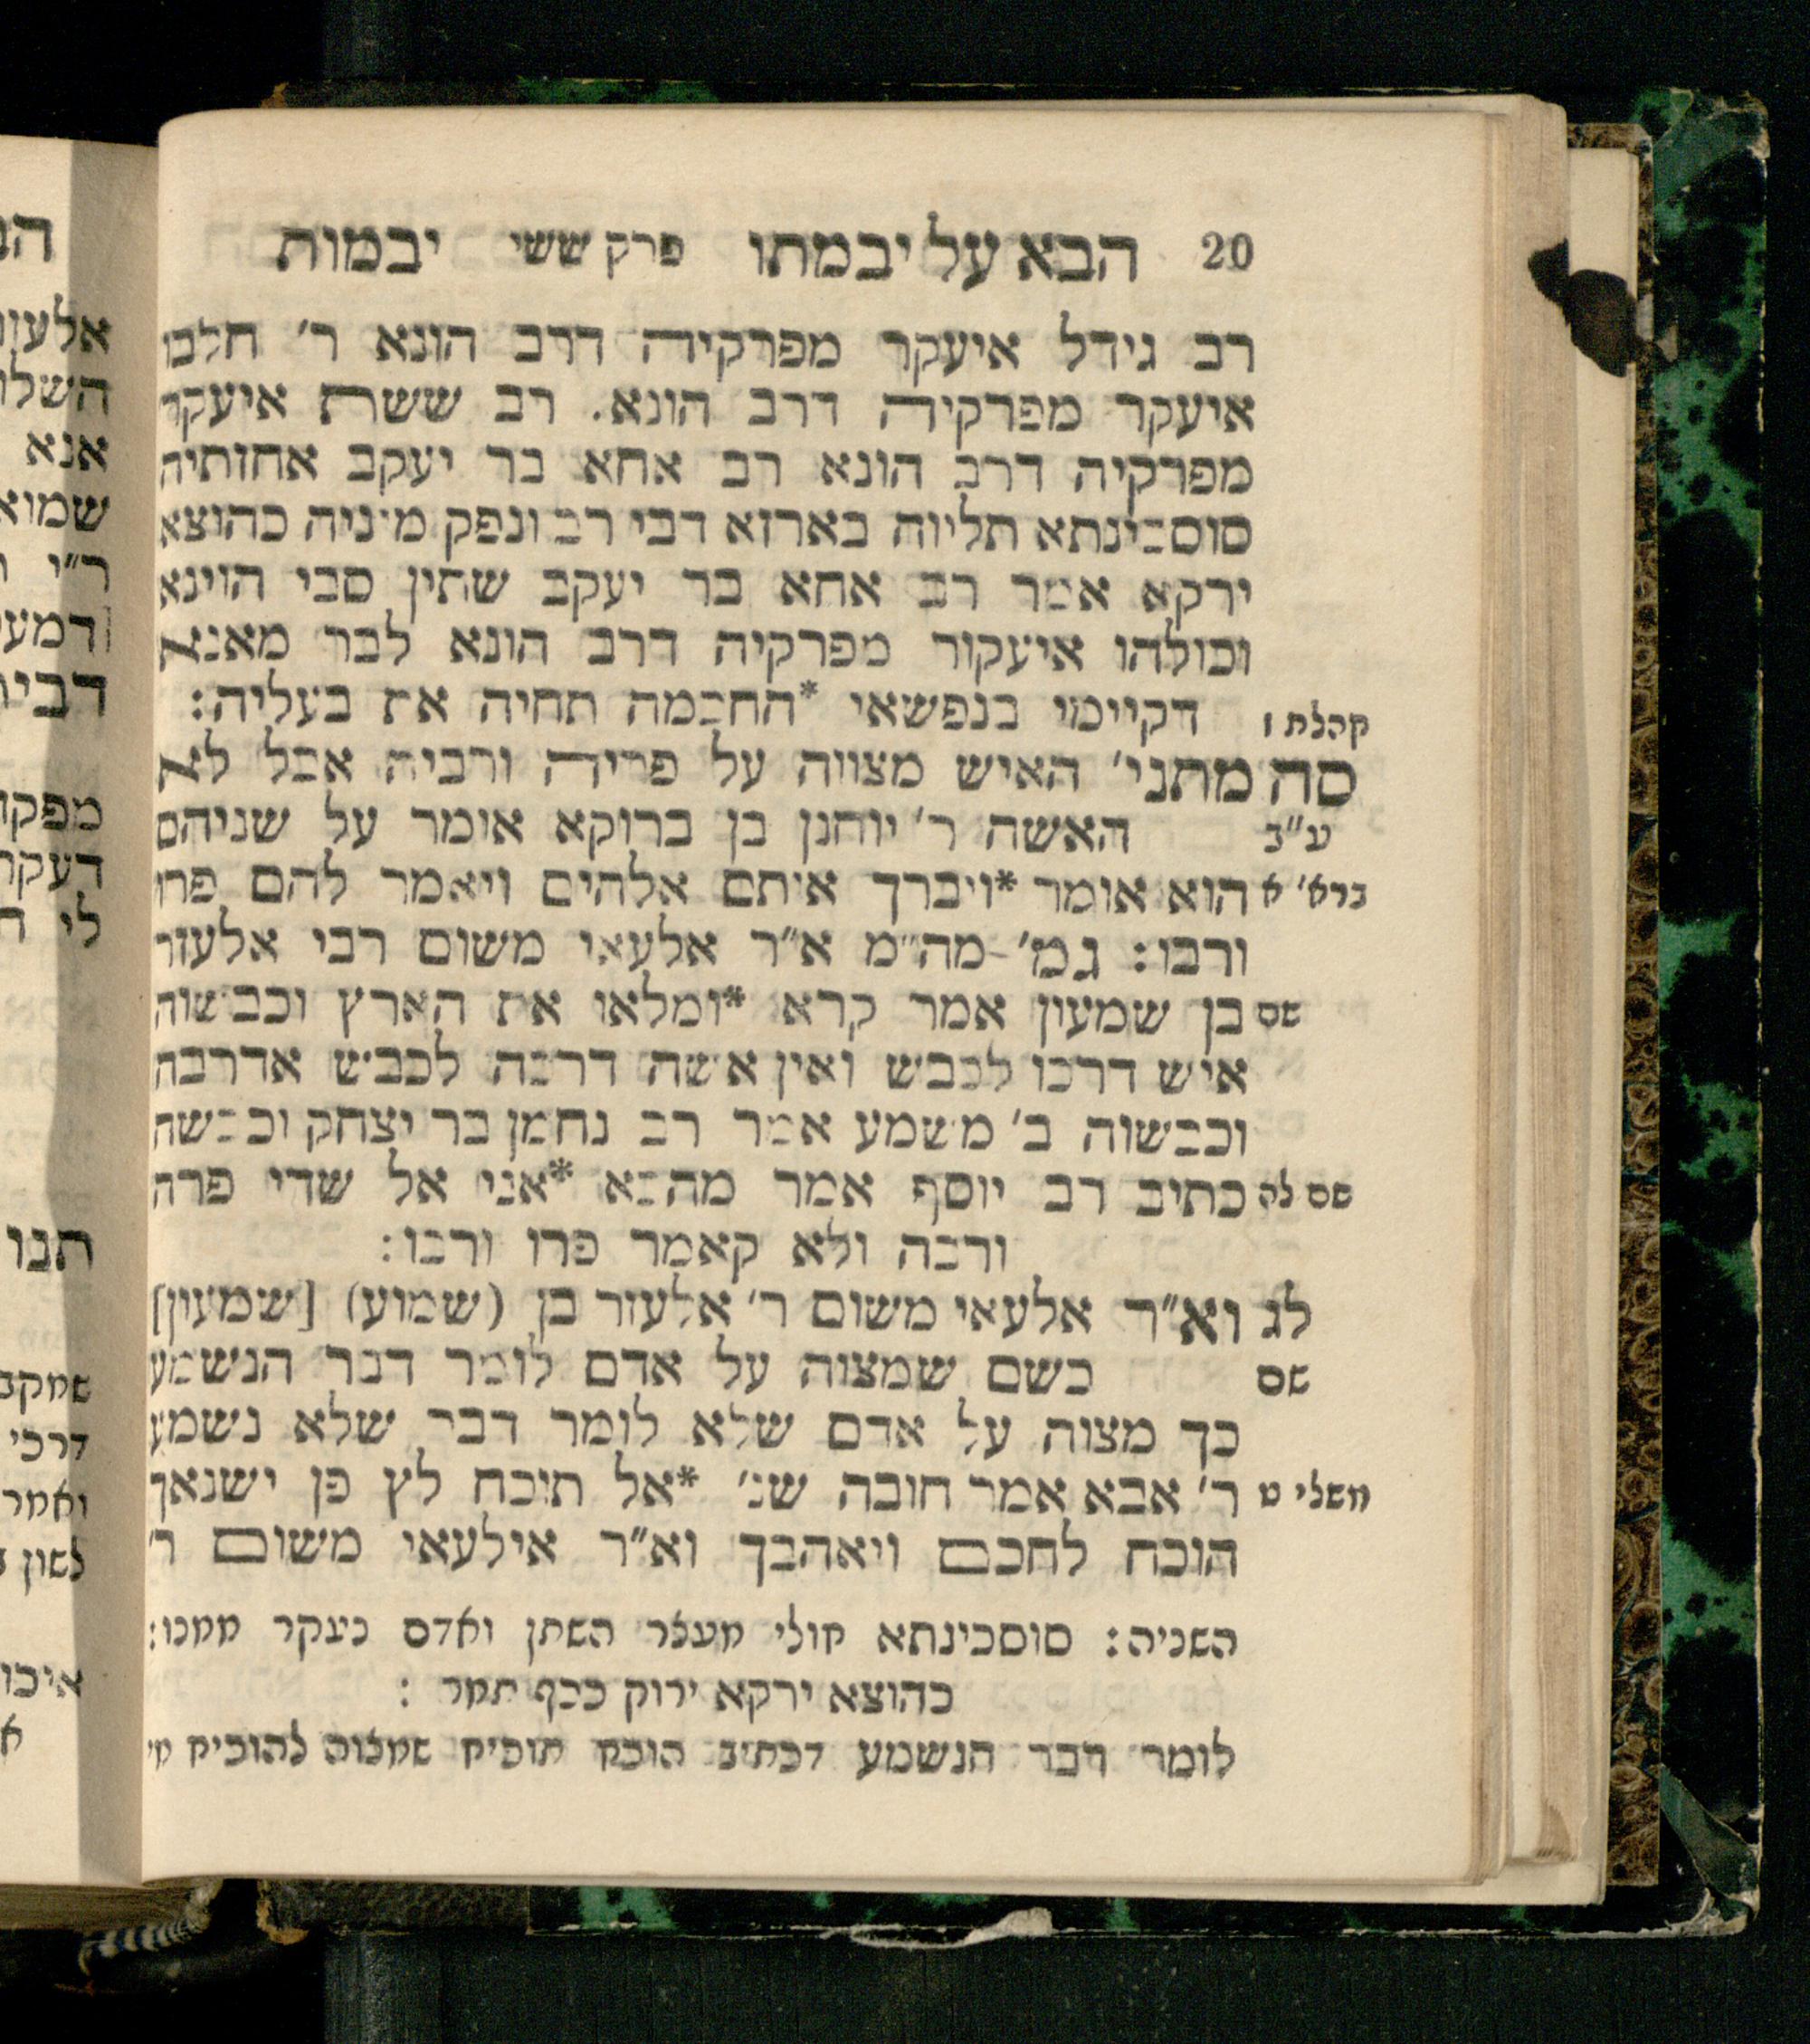 20 הבא על יבמתו פרק ששי יבמות
רב גידל איעקר מפרקיה דרב הונא ר׳ חלבו
איעקר מפרקיה דרב הונא. רב ששת איעקר
מפרקיה דרב הונא רב אחא בר יעקב אחזתיה
סוסכינתא תליוה בארזא דבי רב ונפק מיניה כהוצא
ירקא אמר רב אחא בר יעקב שתין סבי הוינא
וכולהו איעקור מפרקיה דרב הונא לבר מאנא
קהלת ז דקיימי בנפשאי *החכמה תחיה את בעליה:
סה מתני׳ האיש מצווה על פריה ורביה אבל לא
ע״ב האשה ר׳ יוחנן בן ברוקא אומר על שניהם
ברא׳ א הוא אומר *ויברך איתם אלהים ויאמר להם פרו
ורבו: גמ׳ מה״מ א״ר אלעאי משום רבי אלעזר
שם בן שמעון אמר קרא *ומלאו את הארץ וכבשוה
איש דרכו לכבש ואין אשה דרכה לכבש אדרבה
וכבשוה ב׳ משמע אמר רב נחמן בר יצחק וכבשה
שם לה כתיב רב יוסף אמר מהכא *אני אל שדי פרה
ורבה ולא קאמר פרו ורבו:
לג וא״ר אלעאי משום ר׳ אלעזר בן (שמוע) [שמעון]
שם כשם שמצוה על אדם לומר דבר הנשמע
כך מצוה על אדם שלא לומר דבר שלא נשמע
משלי ט ר׳ אבא אמר חובה שנ׳ *אל תוכח לץ פן ישנאך
הוכח לחכם ויאהבך וא״ר אילעאי משום ר׳
השניה: סוסכינתא חולי מעצר השתן ואדם נעקר ממנו:
כהוצא ירקא ירוק ככף תמר :
לומר דבר הנשמע דכתיב הוכח תוכיח שמצוה להוכיח מי